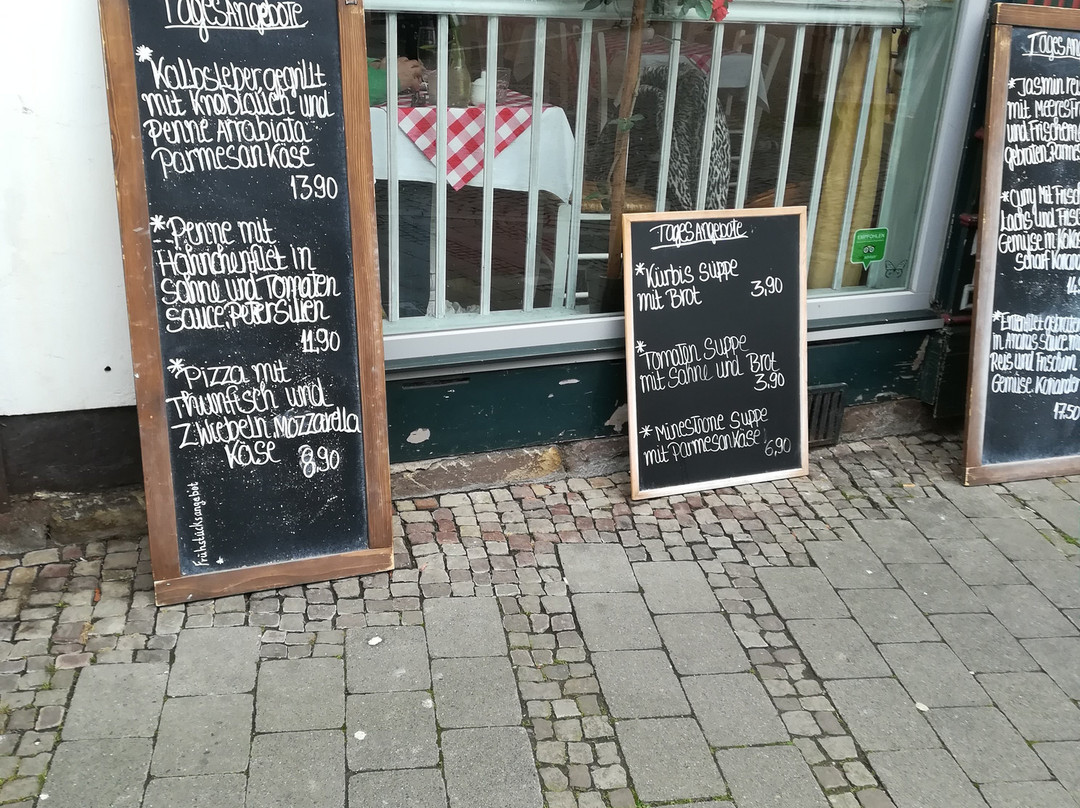 TagesAngebote
* Kalbsleber, gegrillt
mit Knoblauch und
Penne Arrabiata
Parmesan Käse
13,90
* Penne mit
Hähnchenfilet in
Sahne und Tomaten
Sauce, Petersilien
11,90
* Pizza mit
Thumfisch und
Zwiebeln, Mozzarella
Käse 8,90
Frühstücksangebot
TagesAngebote
* Kürbis Suppe
mit Brot 3,90
* Tomaten Suppe
mit Sahne und Brot
3,90
* Minestrone Suppe
mit Parmesankäse 6,90
EMPFOHLEN
Tages An
* Jasmin rei
mit Meeresfr
und Frischem
gebraten, Parmes
mit Frisch
Lachs und Frisc
Gemüse in Kokos
Scharf Korian
14,
* Entenfilet gebraten
in Ananas Sauce mi
Reis und Frischem
Gemüse, Koriander
17,50